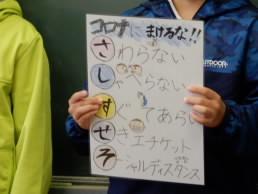 コロナにまけるな!!
さわらない
しゃべらない
すぐてあらい
せきエチケット
そーシャルディスタンス
OUTDOOR